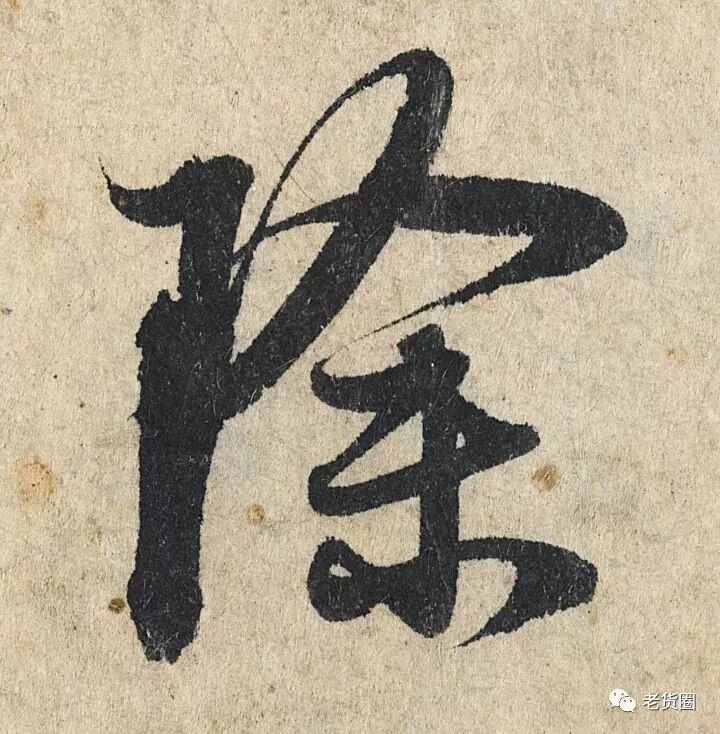 除
老货圈